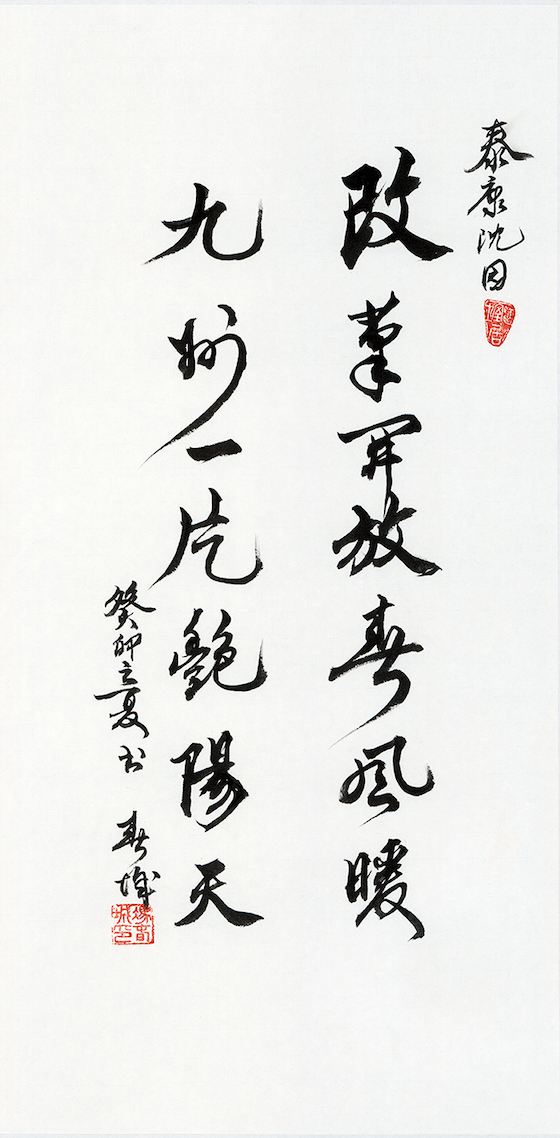 泰康沈园
改革开放春风暖
九州一片艳陽天
癸卯立夏书 春城